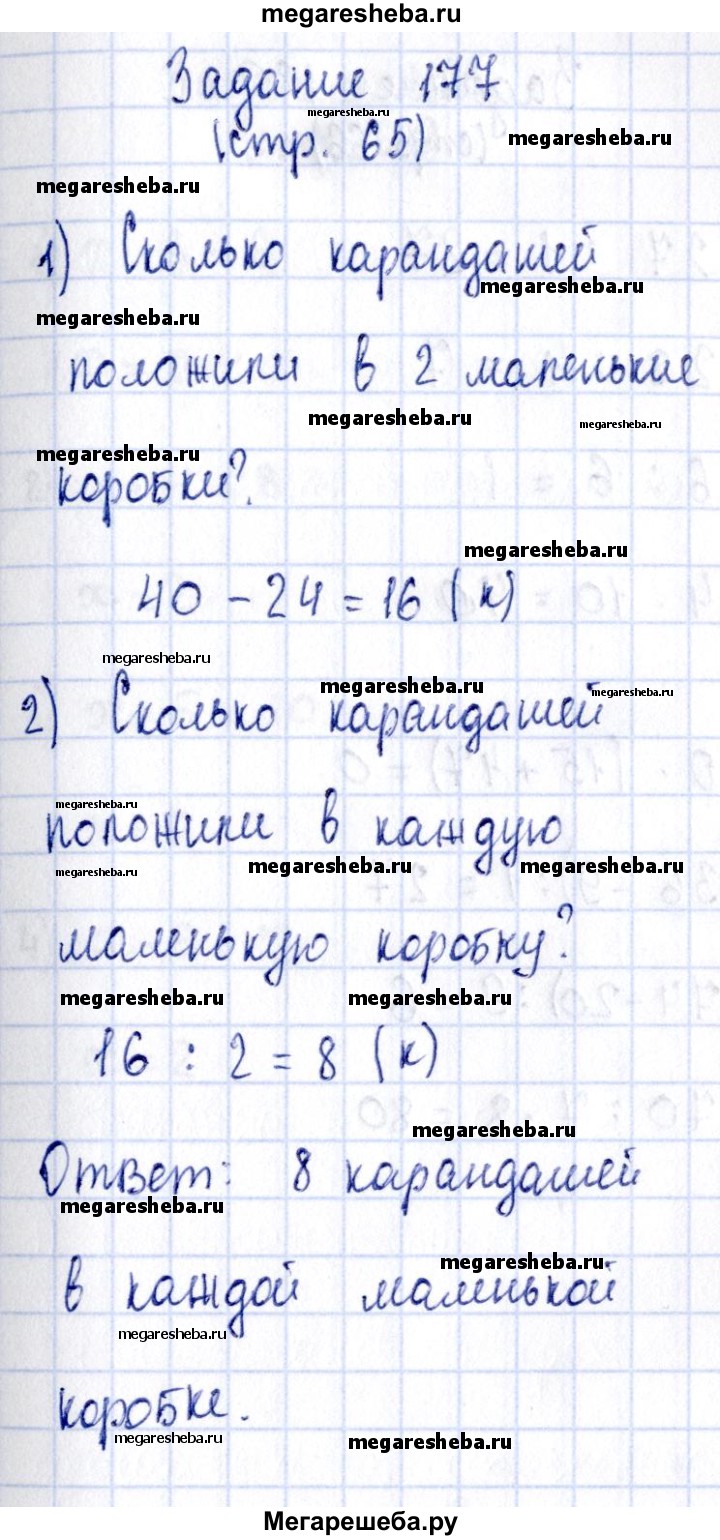 megaresheba.ru
Задание 177
megaresheba.ru
(стр. 65)
megaresheba.ru
megaresheba.ru
1) Сколько карандашей
megaresheba.ru
megaresheba.ru
положили в 2 маленькие
megaresheba.ru
megaresheba.ru
megaresheba.ru
коробки?
megaresheba.ru
40 - 24 = 16 (к)
megaresheba.ru
megaresheba.ru
megaresheba.ru
2) Сколько карандашей
megaresheba.ru
положили в каждую
megaresheba.ru
megaresheba.ru
megaresheba.ru
маленькую коробку?
megaresheba.ru
megaresheba.ru
16 : 2 = 8 (к)
megaresheba.ru
Ответ: 8 карандашей
megaresheba.ru
megaresheba.ru
в каждой маленькой
megaresheba.ru
коробке.
megaresheba.ru
megaresheba.ru
Мегарешеба.ру